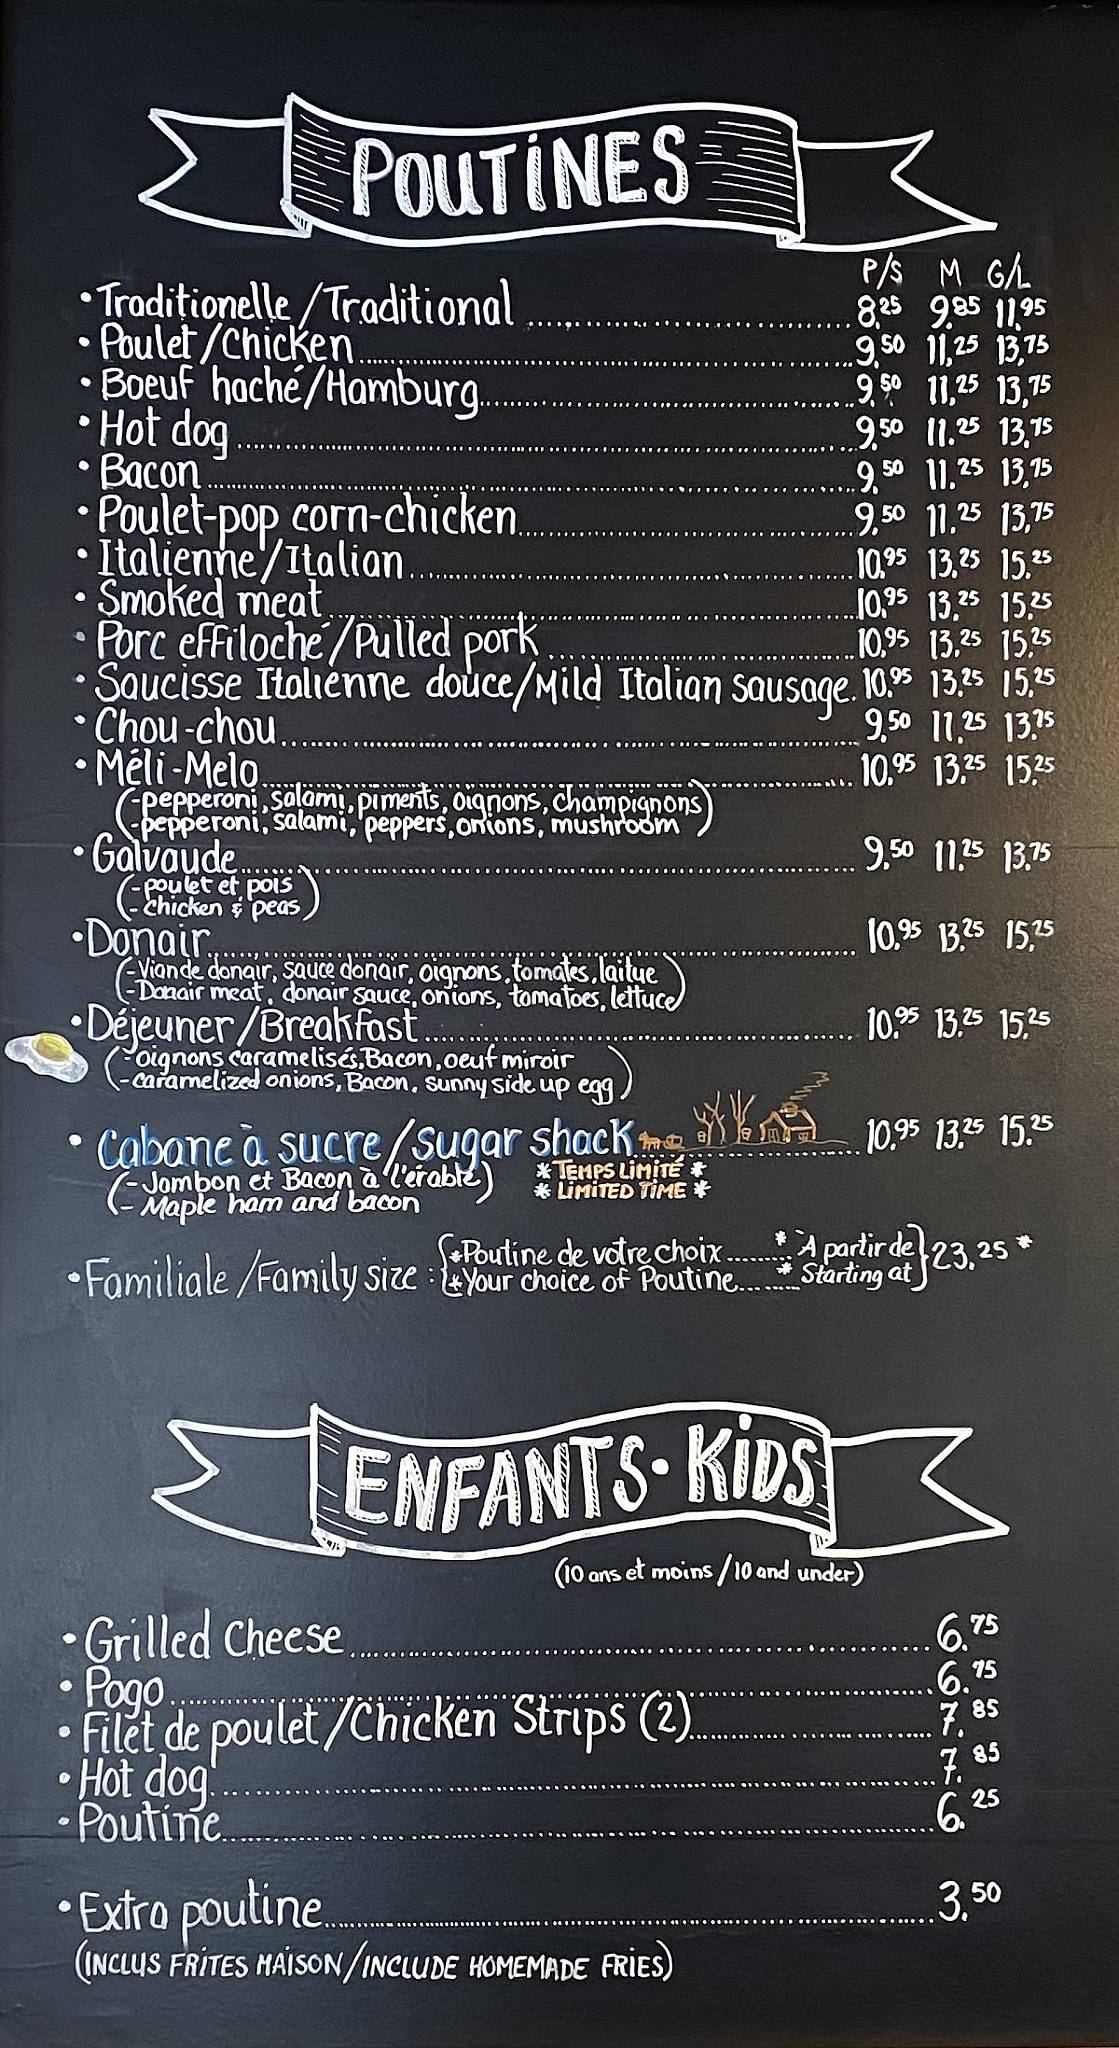 POUTINES
P/S M G/L
• Traditionelle / Traditional 8,25 9,85 11,95
• Poulet / Chicken 9,50 11,25 13,75
• Boeuf haché / Hamburg 9,50 11,25 13,75
• Hot dog 9,50 11.25 13,75
• Bacon 9,50 11.25 13,75
• Poulet-pop corn-chicken 9,50 11.25 13,75
• Italienne / Italian 10,95 13,25 15.25
• Smoked meat 10,95 13,25 15,25
• Porc effiloché / Pulled pork 10,95 13,25 15,25
• Saucisse Italienne douce / Mild Italian sausage 10,95 13,25 15,25
• Chou-chou 9,50 11,25 13.75
• Méli-Melo 10,95 13,25 15,25
(-pepperoni, salami, piments, oignons, champignons)
(-pepperoni, salami, peppers, onions, mushroom)
• Galvaude 9,50 11,25 13.75
(-poulet et pois)
(-chicken & peas)
• Donair 10,95 13,25 15,25
(-Viande donair, sauce donair, oignons, tomates, laitue)
(-Donair meat, donair sauce, onions, tomatoes, lettuce)
• Déjeuner / Breakfast 10,95 13,25 15,25
(-oignons caramelisés, Bacon, oeuf miroir)
(-caramelized onions, Bacon, sunny side up egg)
• Cabane à sucre / sugar shack 10,95 13,25 15.25
(-Jambon et Bacon à l'érable) * TEMPS LIMITÉ *
(-Maple ham and bacon * LIMITED TIME *
*Poutine de votre choix * À partir de
• Familiale / Family size : 23,25 *
*Your choice of Poutine * Starting at
ENFANTS • KIDS
(10 ans et moins / 10 and under)
• Grilled Cheese 6.75
• Pogo 6.75
• Filet de poulet / Chicken Strips (2) 7.85
• Hot dog 7.85
• Poutine 6.25
• Extra poutine 3.50
(INCLUS FRITES MAISON / INCLUDE HOMEMADE FRIES)